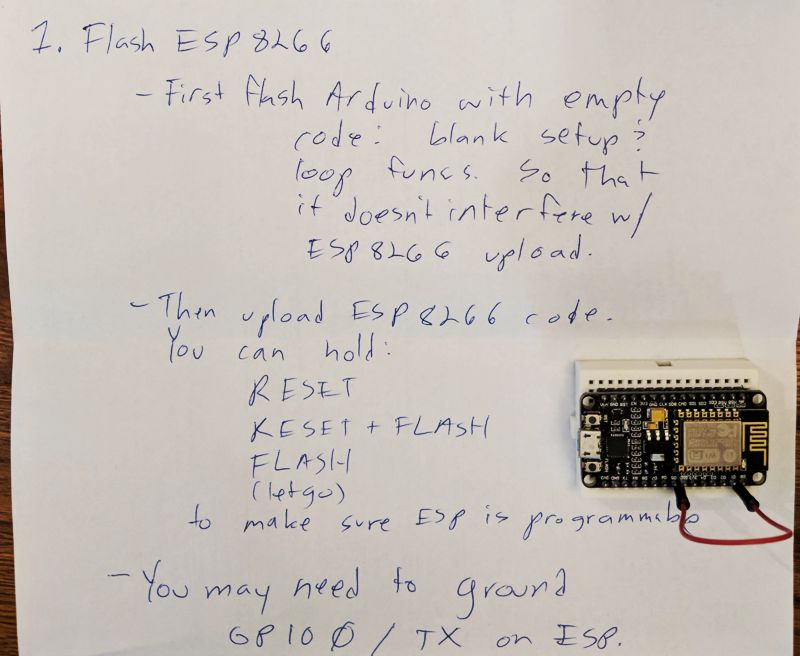 1. Flash ESP8266
- First flash Arduino with empty
code: blank setup &
loop funcs. So that
it doesn't interfere w/
ESP8266 upload.
- Then upload ESP8266 code.
You can hold:
RESET
RESET + FLASH
FLASH
(let go)
to make sure ESP is programmable
- You may need to ground
GPIO0 / TX on ESP.